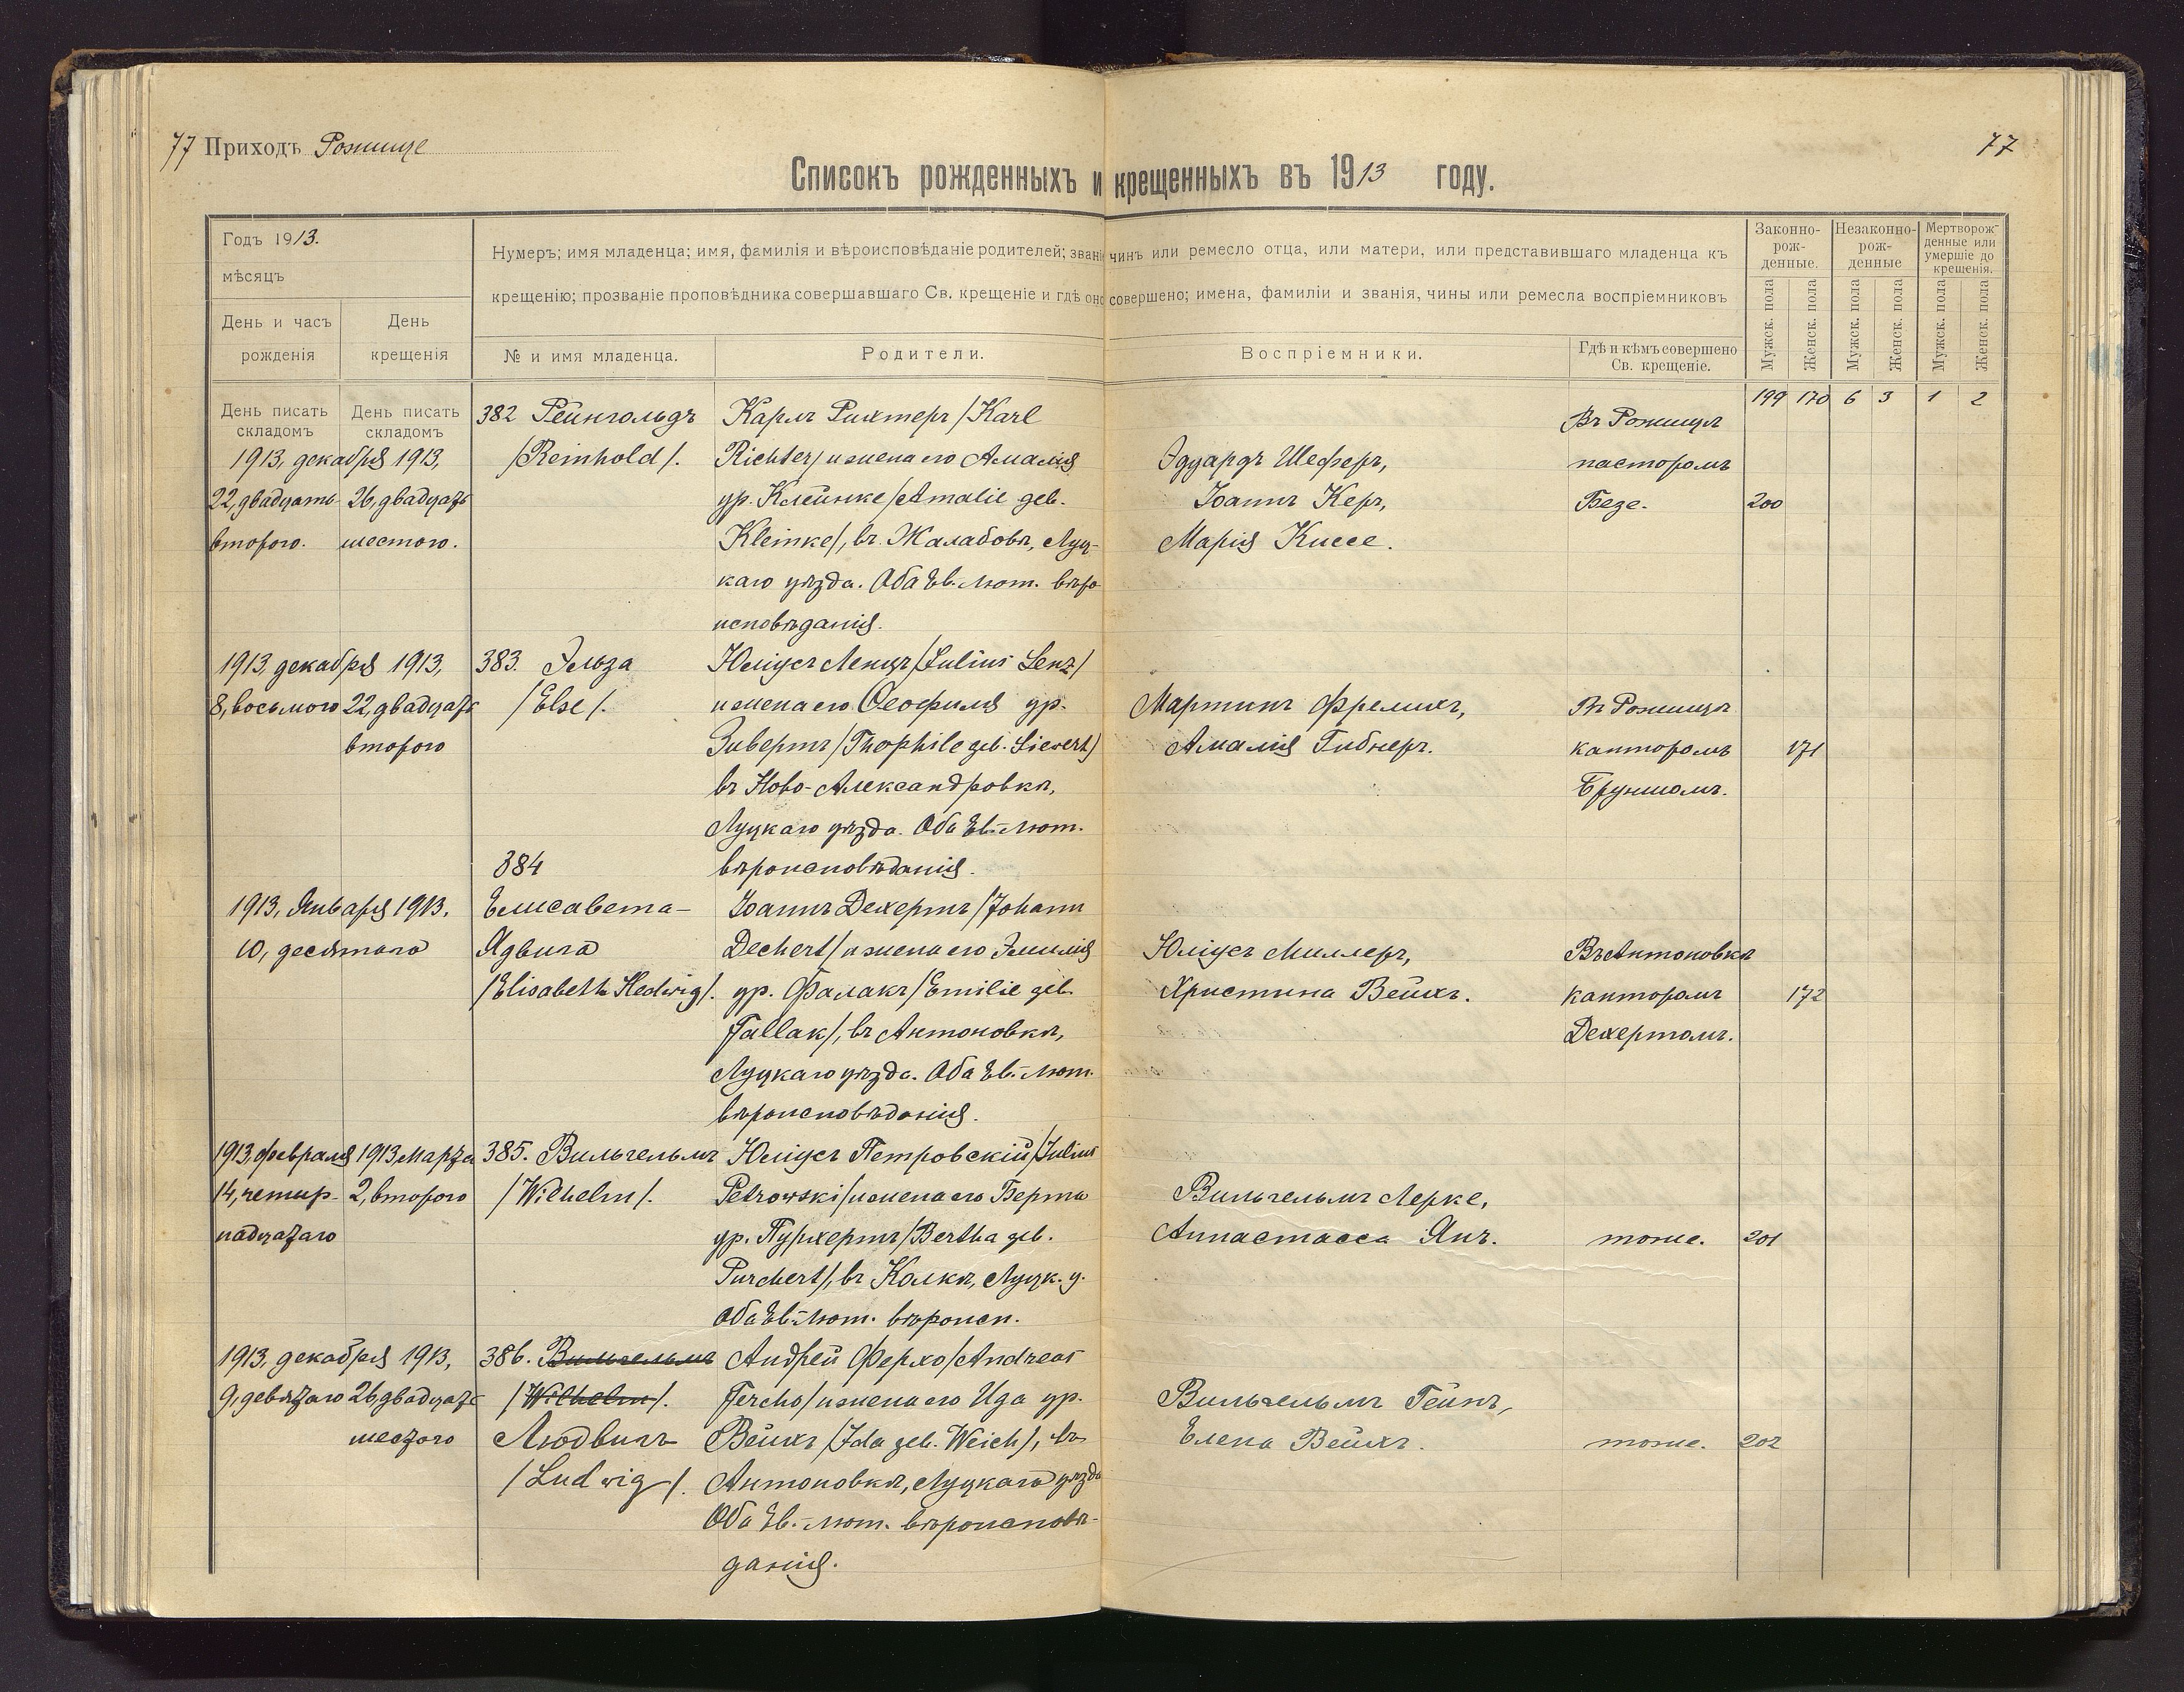 77 Приходъ Рожище
77
Списокъ рожденныхъ и крещенныхъ въ 1913 году.
Годъ 1913.
мѣсяцъ
День и часъ рожденія
День крещенія
Нумеръ; имя младенца; имя, фамилія и вѣроисповѣданіе родителей; званіе чинъ или ремесло отца, или матери, или представившаго младенца къ
крещенію; прозваніе проповѣдника совершавшаго Св. крещеніе и гдѣ оно совершено; имена, фамиліи и званія, чины или ремесла воспріемниковъ
№ и имя младенца.
Родители.
Воспріемники.
Гдѣ и кѣмъ совершено
Св. крещеніе.
Законно-
рож-
денные.
Незаконно-
рож-
денные
Мертворож-
денные или
умершіе до
крещенія.
Мужск. пола
Женск. пола
Мужск. пола
Женск. пола
Мужск. пола
Женск. пола
День писать
складомъ
День писать
складомъ
199 170 6 3 1 2
1913, декабря 1913,
22, двадцать 26, двадцать
второго. шестого.
382 Рейнгольдъ
/Reinhold/.
Карлъ Рихтеръ /Karl
Richter/ и жена его Амалія
ур. Клейнке /Amalie geb.
Kleinke/, въ Жалабовѣ, Луц-
каго уѣзда. Оба Ев. лют. вѣро
исповѣданія.
Эдуардъ Шеферъ,
Іоаннъ Керъ,
Марія Киссе.
Въ Рожищѣ
пасторомъ
Безе.
200
1913, декабря 1913,
8, восьмого 22, двадцать
второго
383. Эльза
/Else/.
Юліусъ Ленцъ /Julius Lenz/
и жена его Ѳеофилія ур.
Зивертъ /Theophile geb. Sievert/
въ Ново-Александровкѣ,
Луцкаго уѣзда. Оба Ев.-лют.
вѣроисповѣданія.
Мартинъ Фрелихъ,
Амалія Гибнеръ.
Въ Рожищѣ
канторомъ
Бруншомъ.
171
384
1913, Января 1913.
10, десятаго
Елисавета-
Ядвига
/Elisabeth Hedwig/.
Іоаннъ Дехертъ /Johann
Dechert/ и жена его Эмилія
ур. Фалакъ /Emilie geb.
Fallak/, въ Антоновкѣ,
Луцкаго уѣзда. Оба Ев.-лют.
вѣроисповѣданія.
Юліусъ Миллеръ,
Христина Вейхъ.
Въ Антоновкѣ
канторомъ
Дехертомъ.
172
1913, февраля 1913 Марта
14, четыр- 2, второго
надцатаго
385. Вильгельмъ
/Wilhelm/.
Юліусъ Петровскій /Julius
Petrowski/ и жена его Берта
ур. Пурхертъ /Bertha geb.
Purchert/, въ Колкѣ, Луцк. у.
Оба Ев.-лют. вѣроисп.
Вильгельмъ Лерке,
Аннастасса Янъ.
тоже.
201
1913, декабря 1913,
9, девятаго 26, двадцать
шестого
386. Вильгельмъ
/Wilhelm/.
Людвигъ
/Ludwig/.
Андрей Ферхо /Andreas
Fercho/ и жена его Ида ур.
Вейхъ /Ida geb. Weich/, въ
Антоновкѣ, Луцкаго уѣзда
Оба Ев.-лют. вѣроисповѣ-
данія.
Вильгельмъ Гейнъ,
Елена Вейхъ.
тоже.
202